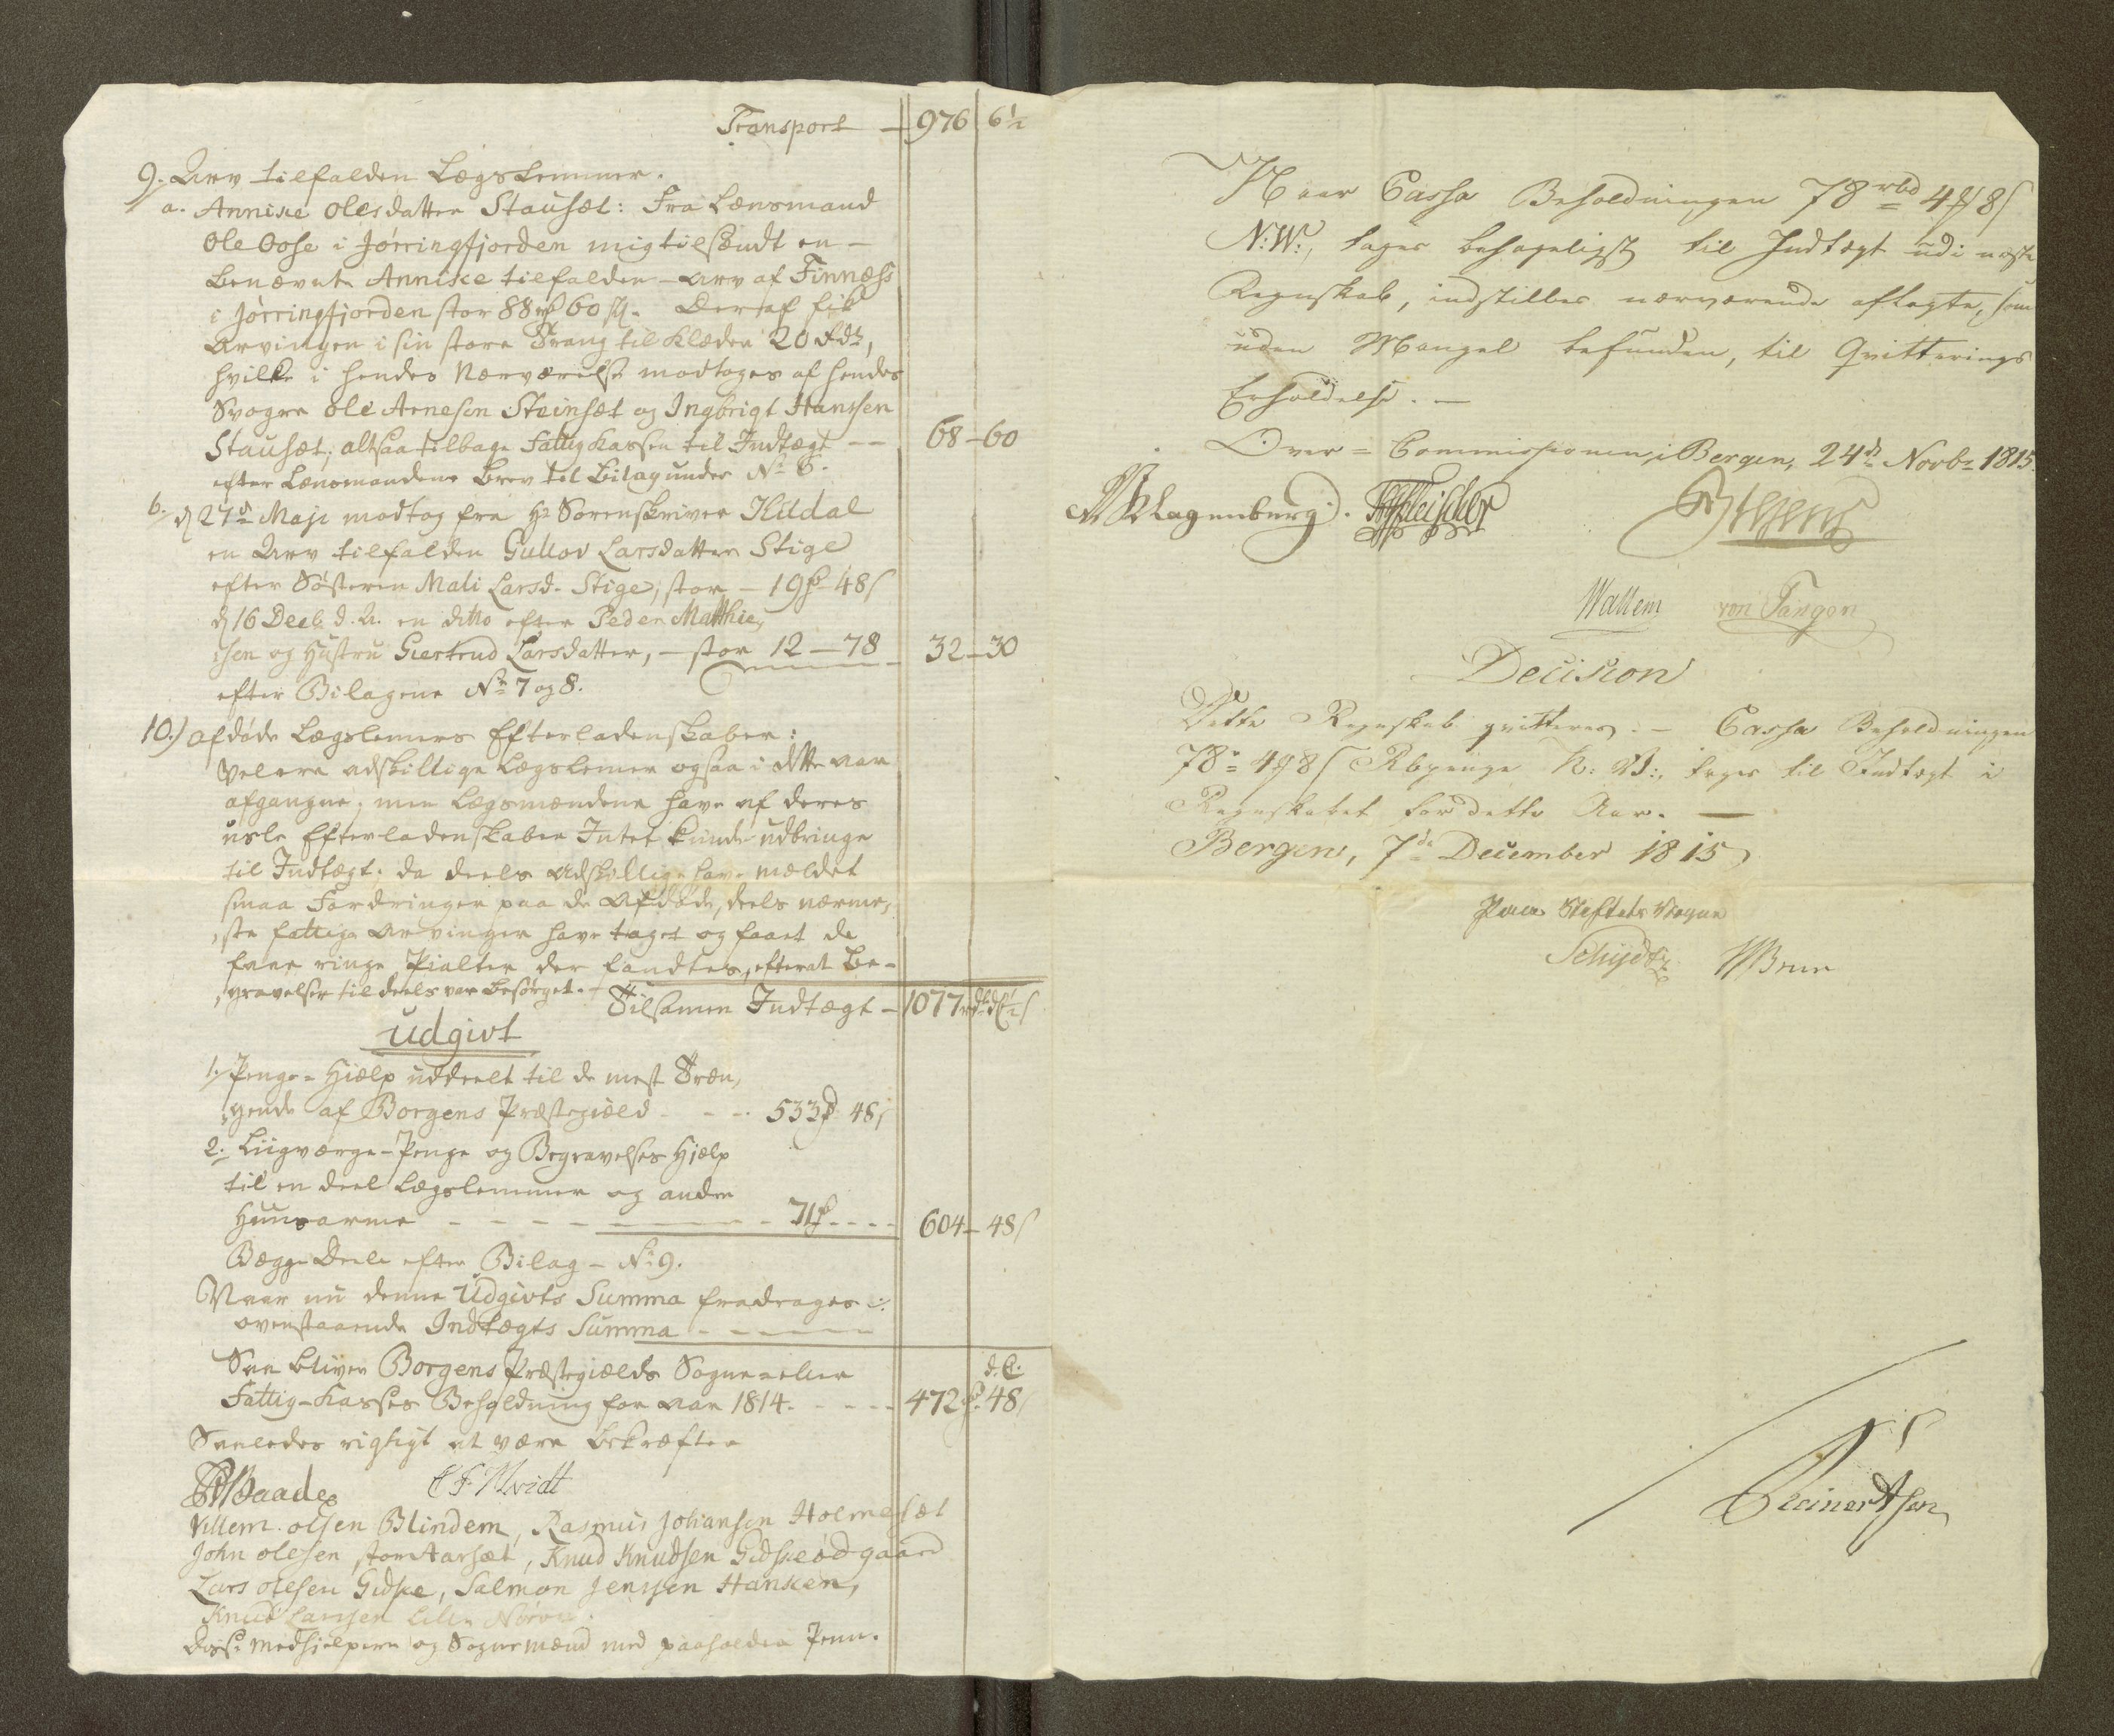 Transport — 976 6½
9. Arv tilfalden Lægslemmer.
a. Annike Olesdatter Stauset: Fra Lænsmand
Ole Oose i Jørringfjorden mig tilsendt en —
benævnte Annike tilfalden Arv af Finnæss
i Jørringfjorden stor 88 60 s. Deraf fik
Arvingen i sin store Trang til Klæder 20 rdr,
hvilke i hendes Nærværelse modtoges af hendes
Svogre Ole Arnesen Steinset og Ingbrigt Hanssen
Stauset; altsaa tilbage Fattig Kassen til Indtægt — 68 — 60
efter Lænsmandens brev til Bilag under No 6.
b. d 27d Maji modtog fra Hr Sorenskriver Kildal
en Arv tilfalden Gullov Larsdatter Stige
efter Søsteren Mali Larsd. Stige, stor — 19 48 s
d 16 Decb. d. A. en ditto efter Peder Matthie,
,sen og Hustru Giertrud Larsdatter, — stor 12 — 78 32 — 30
efter Bilagene No 7 og 8.
10.) afdøde Lægslemers Efterladenskaber:
Vel ere adskillige Lægslemer ogsaa i dette Aar
afgangne; men Lægsmændene have af deres
usle Efterladenskaber Intet kunde udbringe
til Indtægt; da deels Adskillige have meldet
smaa Fordringer paa de Afdøde, deels nærme,
,ste fattige Arvinger have taget og faaet de
faae ringe Pialter der fandtes, efterat Be-
,gravelser tildeels var besørget. — Tilsamen Indtægt — 1077
Udgivt
1. Penge-Hielp uddeelt til de mest Træn,
,gende af Borgens Præstegield - - - 533 48 s
2. Liigværge-Penge og Begravelses Hielp
til en deel Lægslemmer og andre
Huusarme - - - - 71 - - - 604 — 48 s
Begge Dele efter Bilag — No 9.
Naar nu denne Udgivts Summa fradrages
ovenstaaende Indtægts Summa - - - -
Saa bliver Borgens Præstegields Sogne eller
Fattig-Kasses Beholdning for Aar 1814. - - - - 472 48 s
Saaledes rigtigt at være bekræfter
Baade
Villem Olsen Blindem, Rasmus Johansen Holmeset
John Olesen stor Aarset, Knud Knudsen Gidskeødgaard
Lars Olesen Gidske, Salmon Jenssen Hanken,
Knud Larssen Lille Nørve
disse Medhielpere og Sognemænd med paaholden Pen.
Naar Cassa Beholdningen 78 rbd 4 8 s
N: W:, tages behageligst til Indtægt udi næste
Regnskab, indstilles nærværende aflagte, som
uden Mangel befunden, til Qvitterings
Erholdelse. —
Over-Commissionen i Bergen, 24d Novbr 1815.
Klagenberg. Fleischer
Wallem von Tangen
Decision
Dette Regnskab qvitteres. — Cassa Beholdningen
78 r 4 8 s Rbpenge N: W:, tages til Indtægt i
Regnskabet for dette Aar. —
Bergen, 7de December 1815
Paa Stiftets Vegne
Schydtz Brun
Reinertsen